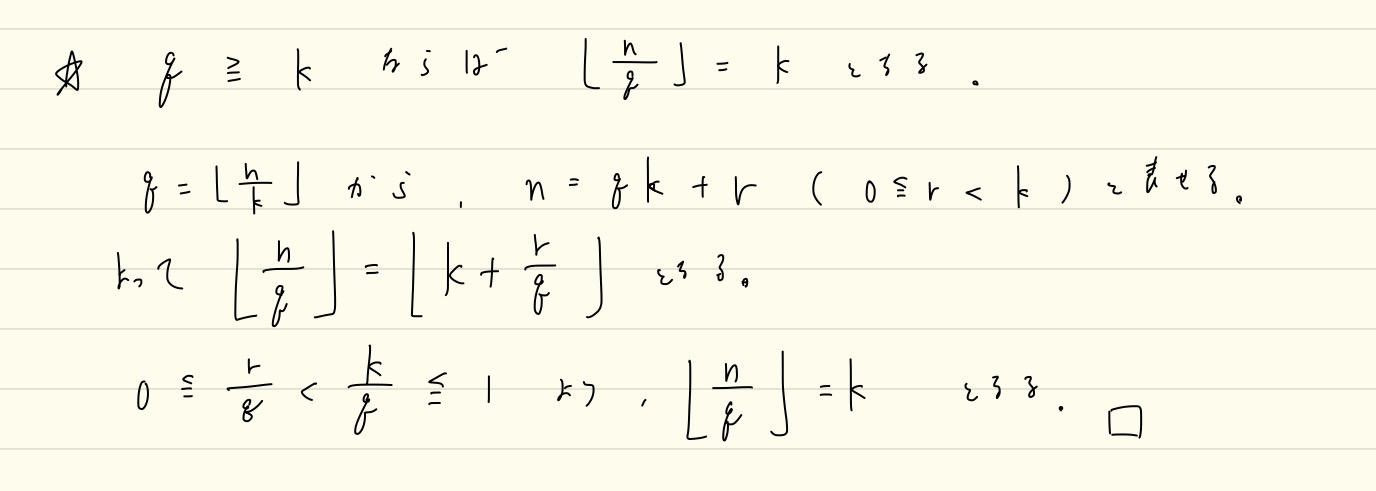 ☆ q ≧ k ならば ⌊n/q⌋ = k となる.
q = ⌊n/k⌋ から, n = qk + r (0 ≦ r < k) と表せる。
よって ⌊n/q⌋ = ⌊k + r/q⌋ となる。
0 ≦ r/q < k/q ≦ 1 より, ⌊n/q⌋ = k となる. □